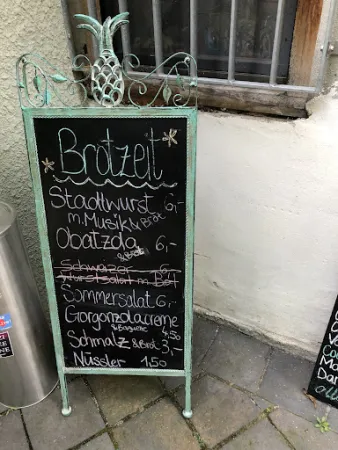 Brotzeit
Stadtwurst 6,-
m. Musik & Brot
Obatzda 6,-
& Brot
Schwaizer 6,-
Wurstsalat m. Brot
Sommersalat 6,-
Gorgonzolacreme
& Baguette 4,50
Schmalz & Brot 3,-
Nüssler 1,50